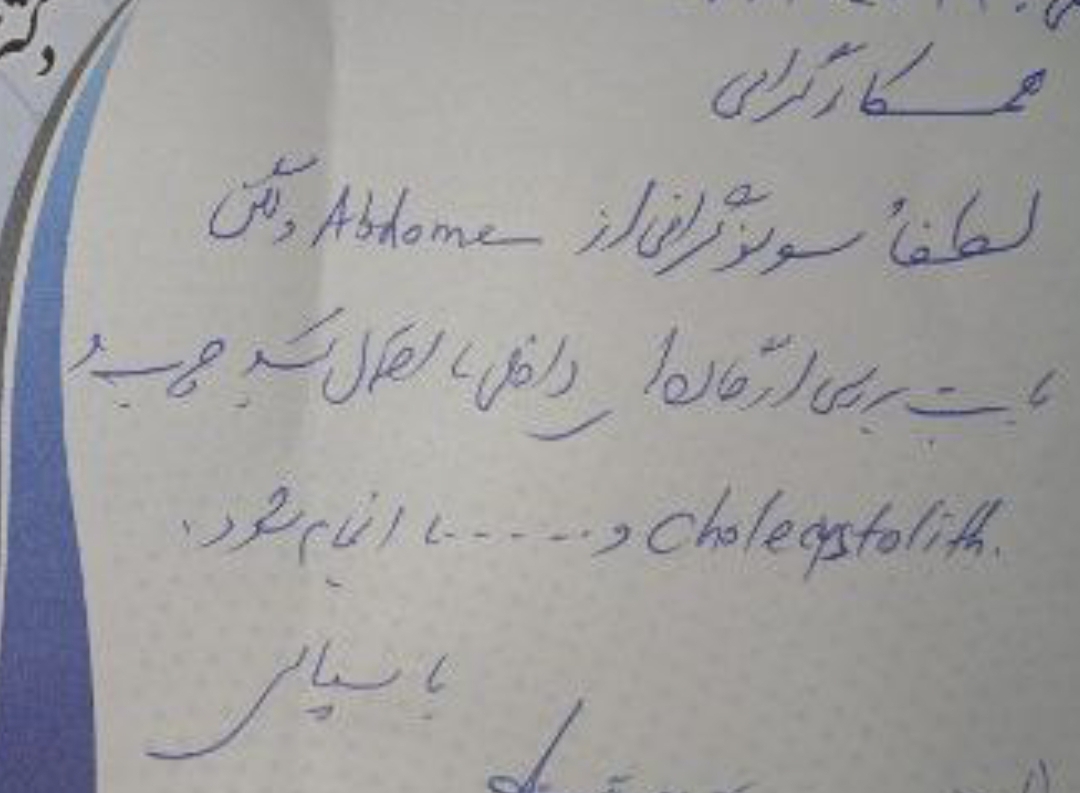 همکار گرامی
لطفاً سونوگرافی از Abdomen و لگن
بابت بررسی ارگانهای داخلی با احتمال کبد چرب و
Cholecystolith. و ...... انجام شود.
با سپاس